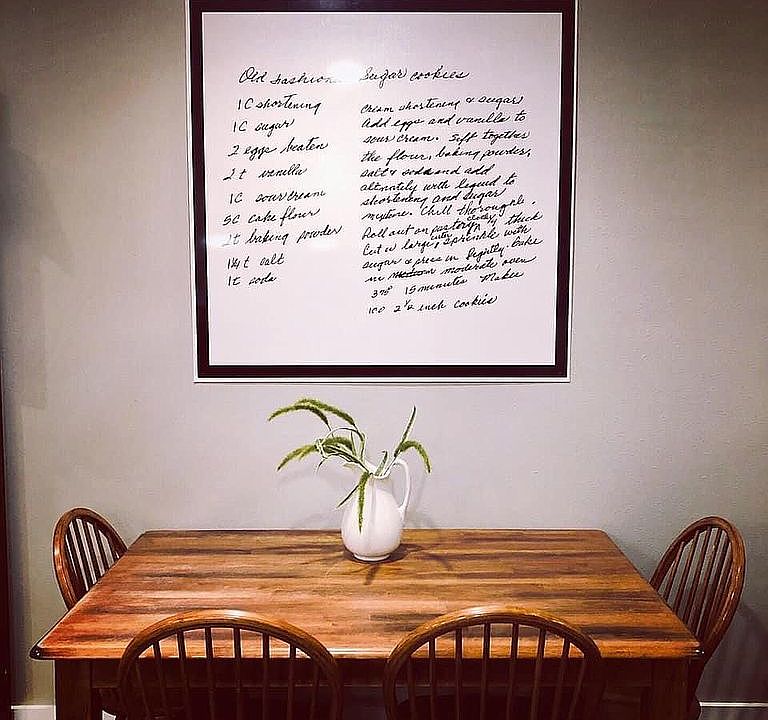 Old Fashion Sugar cookies
1 C shortening
1 C sugar
2 eggs beaten
2 t vanilla
1 C sour cream
5 C cake flour
2t baking powder
1/4 t salt
1t soda
Cream shortening & sugar
Add eggs and vanilla to
sour cream. Sift together
the flour, baking powder,
salt & soda and add
altinately with liquid to
shortening and sugar
mixture. Chill thoroughly.
Roll out on pastery thick
Cut w large cutter, Sprinkle with
sugar & press in lightly. Bake
in moderate oven
375° 15 minutes Makes
100 2 1/2 inch cookies